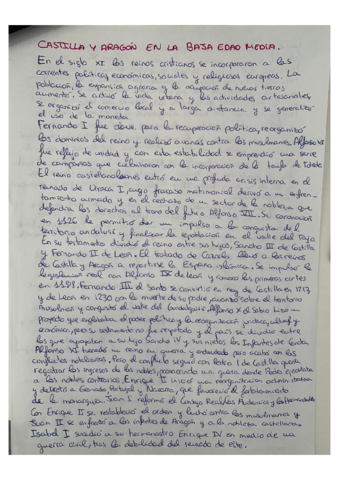 CASTILLA Y ARAGÓN EN LA BAJA EDAD MEDIA.
En el siglo XI los reinos cristianos se incorporaron a las
corrientes políticas, económicas, sociales y religiosas europeas. La
población, la expansión agraria y la ocupación de nuevas tierras
aumentó. Se activó la vida urbana y las actividades artesanales
se organizó el comercio local y a larga distancia y se generalizó
el uso de la moneda.
Fernando I fue clave para la recuperación política, reorganizó
los dominios del reino y realizó avances contra los musulmanes. Alfonso VI
fue reflejo de unidad y con esta estabilidad se emprendió una serie
de campañas que culminaron con la incorporación de la taifa de Toledo.
El reino castellanoleonés entró en una profunda crisis interna en el
reinado de Urraca I, cuyo fracaso matrimonial derivó en un enfren-
tamiento armado y en el rechazo de un sector de la nobleza que
defendía los derechos al trono del futuro Alfonso VII. Su coronación
en 1126 le permitió dar un impulso a la conquista del
territorio andalusí y finalizar la repoblación en el valle del Tajo.
En su testamento dividió el reino entre sus hijos, Sancho III de Castilla
y Fernando II de León. El tratado de Cazola llevó a los reinos
de Castilla y Aragón a repartirse la España islámica. Se impulsó la
legislación real con Alfonso IX de León y convocó las primeras cortes
en 1188. Fernando III el santo se convirtió en rey de Castilla en 1217
y de León en 1230 con la muerte de su padre, avanzando sobre el territorio
musulmán y conquistó el valle del Guadalquivir. Alfonso X el Sabio hizo un
proyecto que englobaba el poder político y la reorganización jurídica, cultural y
económica, pero su testamento no fue respetado y el país se dividió entre
los que apoyaban a su hijo Sancho IV y sus nietos los Infantes de Cerda,
Alfonso XI heredó un reino en guerra y endeudado pero acabó con los
conflictos nobiliarios. Pero el conflicto seguía con Pedro I de Castilla quería
registrar los ingresos de los nobles, provocando una guerra donde Pedro ejecutaba
a los nobles contrarios. Enrique II inició una reorganización administrativa
y derrotó a Granada, Portugal y Navarra, que favoreció el fortalecimiento
de la monarquía. Juan I reformó el Consejo Real, la Audiencia y las Hermandades
Con Enrique III se restableció el orden y luchó contra los musulmanes y
Juan II se enfrentó a los infantes de Aragón y a la nobleza castellana.
Isabel I sucedió a su hermanastro Enrique IV en medio de una
guerra civil, tras la debilidad del reinado de este.